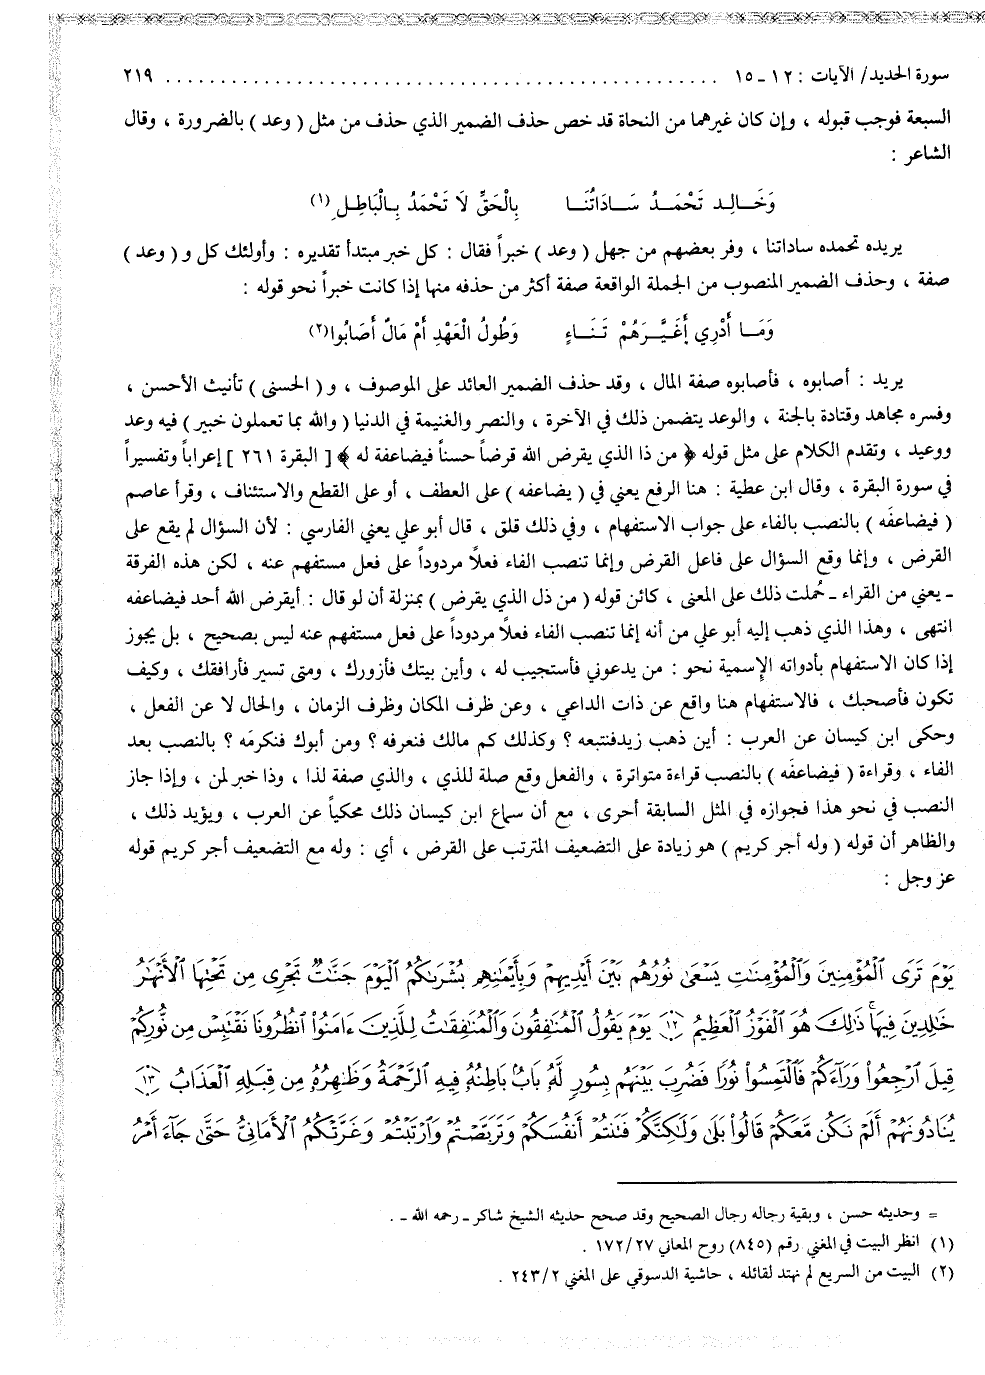 سورة الحديد/ الآيات : ١٢ ـ ١٥ ................................................ ٢١٩
السبعة فوجب قبوله ، وإن كان غيرهما من النحاة قد خص حذف الضمير الذي حذف من مثل ( وعد ) بالضرورة ، وقال
الشاعر :
وَخَـــالِـد تَحْمَـدُ سَــادَاتُنَـا بِالْحَقِّ لَا تَحْمَدُ بِـالْبَاطِـلِ(١)
يريده تحمده ساداتنا ، وفر بعضهم من جهل ( وعد ) خبراً فقال : كل خبر مبتدأ تقديره : وأولئك كل و ( وعد )
صفة ، وحذف الضمير المنصوب من الجملة الواقعة صفة أكثر من حذفه منها إذا كانت خبراً نحو قوله :
وَمَـا أَدْرِي أَغَيَّـرَهُمْ تَـنَـاءٍ وَطُولُ الْعَهْدِ أَمْ مَالٌ أَصَابُوا(٢)
يريد : أصابوه ، فأصابوه صفة المال ، وقد حذف الضمير العائد على الموصوف ، و ( الحسنى ) تأنيث الأحسن ،
وفسره مجاهد وقتادة بالجنة ، والوعد يتضمن ذلك في الآخرة ، والنصر والغنيمة في الدنيا ( والله بما تعملون خبير ) فيه وعد
ووعيد ، وتقدم الكلام على مثل قوله ﴿ من ذا الذي يقرض الله قرضاً حسناً فيضاعفة له ﴾ [ البقرة ٢٦١ ] إعراباً وتفسيراً
في سورة البقرة ، وقال ابن عطية : هنا الرفع يعني في ( يضاعفه ) على العطف ، أو على القطع والاستئناف ، وقرأ عاصم
( فيضاعفَه ) بالنصب بالفاء على جواب الاستفهام ، وفي ذلك قلق ، قال أبو علي يعني الفارسي : لأن السؤال لم يقع على
القرض ، وإنما وقع السؤال على فاعل القرض وإنما تنصب الفاء فعلًا مردوداً على فعل مستفهم عنه ، لكن هذه الفرقة
ـ يعني من القراء ـ حُملت ذلك على المعنى ، كائن قوله ( من ذل الذي يقرض ) بمنزلة أن لو قال : أيقرض الله أحد فيضاعفه
انتهى ، وهذا الذي ذهب إليه أبو علي من أنه إنما تنصب الفاء فعلًا مردوداً على فعل مستفهم عنه ليس بصحيح ، بل يجوز
إذا كان الاستفهام بأدواته الإسمية نحو : من يدعوني فأستجيب له ، وأين بيتك فأزورك ، ومتى تسير فأرافقك ، وكيف
تكون فأصحبك ، فالاستفهام هنا واقع عن ذات الداعي ، وعن ظرف المكان وظرف الزمان ، والحال لا عن الفعل ،
وحكى ابن كيسان عن العرب : أين ذهب زيدفنتبعه ؟ وكذلك كم مالك فنعرفه ؟ ومن أبوك فنكرمَه ؟ بالنصب بعد
الفاء ، وقراءة ( فيضاعفَه ) بالنصب قراءة متواترة ، والفعل وقع صلة للذي ، والذي صفة لذا ، وذا خبر لمن ، وإذا جاز
النصب في نحو هذا فجوازه في المثل السابقة أحرى ، مع أن سماع ابن كيسان ذلك محكياً عن العرب ، ويؤيد ذلك ،
والظاهر أن قوله ( وله أجر كريم ) هو زيادة على التضعيف المترتب على القرض ، أي : وله مع التضعيف أجر كريم قوله
عز وجل :
يَوْمَ تَرَى ٱلْمُؤْمِنِينَ وَٱلْمُؤْمِنَٰتِ يَسْعَىٰ نُورُهُم بَيْنَ أَيْدِيهِمْ وَبِأَيْمَٰنِهِم بُشْرَىٰكُمُ ٱلْيَوْمَ جَنَّٰتٌ تَجْرِى مِن تَحْتِهَا ٱلْأَنْهَٰرُ
خَٰلِدِينَ فِيهَا ۚ ذَٰلِكَ هُوَ ٱلْفَوْزُ ٱلْعَظِيمُ ﴿١٢﴾ يَوْمَ يَقُولُ ٱلْمُنَٰفِقُونَ وَٱلْمُنَٰفِقَٰتُ لِلَّذِينَ ءَامَنُوا۟ ٱنظُرُونَا نَقْتَبِسْ مِن نُّورِكُمْ
قِيلَ ٱرْجِعُوا۟ وَرَآءَكُمْ فَٱلْتَمِسُوا۟ نُورًا فَضُرِبَ بَيْنَهُم بِسُورٍ لَّهُۥ بَابٌۢ بَاطِنُهُۥ فِيهِ ٱلرَّحْمَةُ وَظَٰهِرُهُۥ مِن قِبَلِهِ ٱلْعَذَابُ ﴿١٣﴾
يُنَادُونَهُمْ أَلَمْ نَكُن مَّعَكُمْ قَالُوا۟ بَلَىٰ وَلَٰكِنَّكُمْ فَتَنتُمْ أَنفُسَكُمْ وَتَرَبَّصْتُمْ وَٱرْتَبْتُمْ وَغَرَّتْكُمُ ٱلْأَمَانِىُّ حَتَّىٰ جَآءَ أَمْرُ
= وحديثه حسن ، وبقية رجاله رجال الصحيح وقد صحح حديثه الشيخ شاكر ـ رحمه الله ـ .
(١) انظر البيت في المغني رقم (٨٤٥) روح المعاني ١٧٢/٢٧ .
(٢) البيت من السريع لم نهتد لقائله ، حاشية الدسوقي على المغني ٢٤٣/٢ .